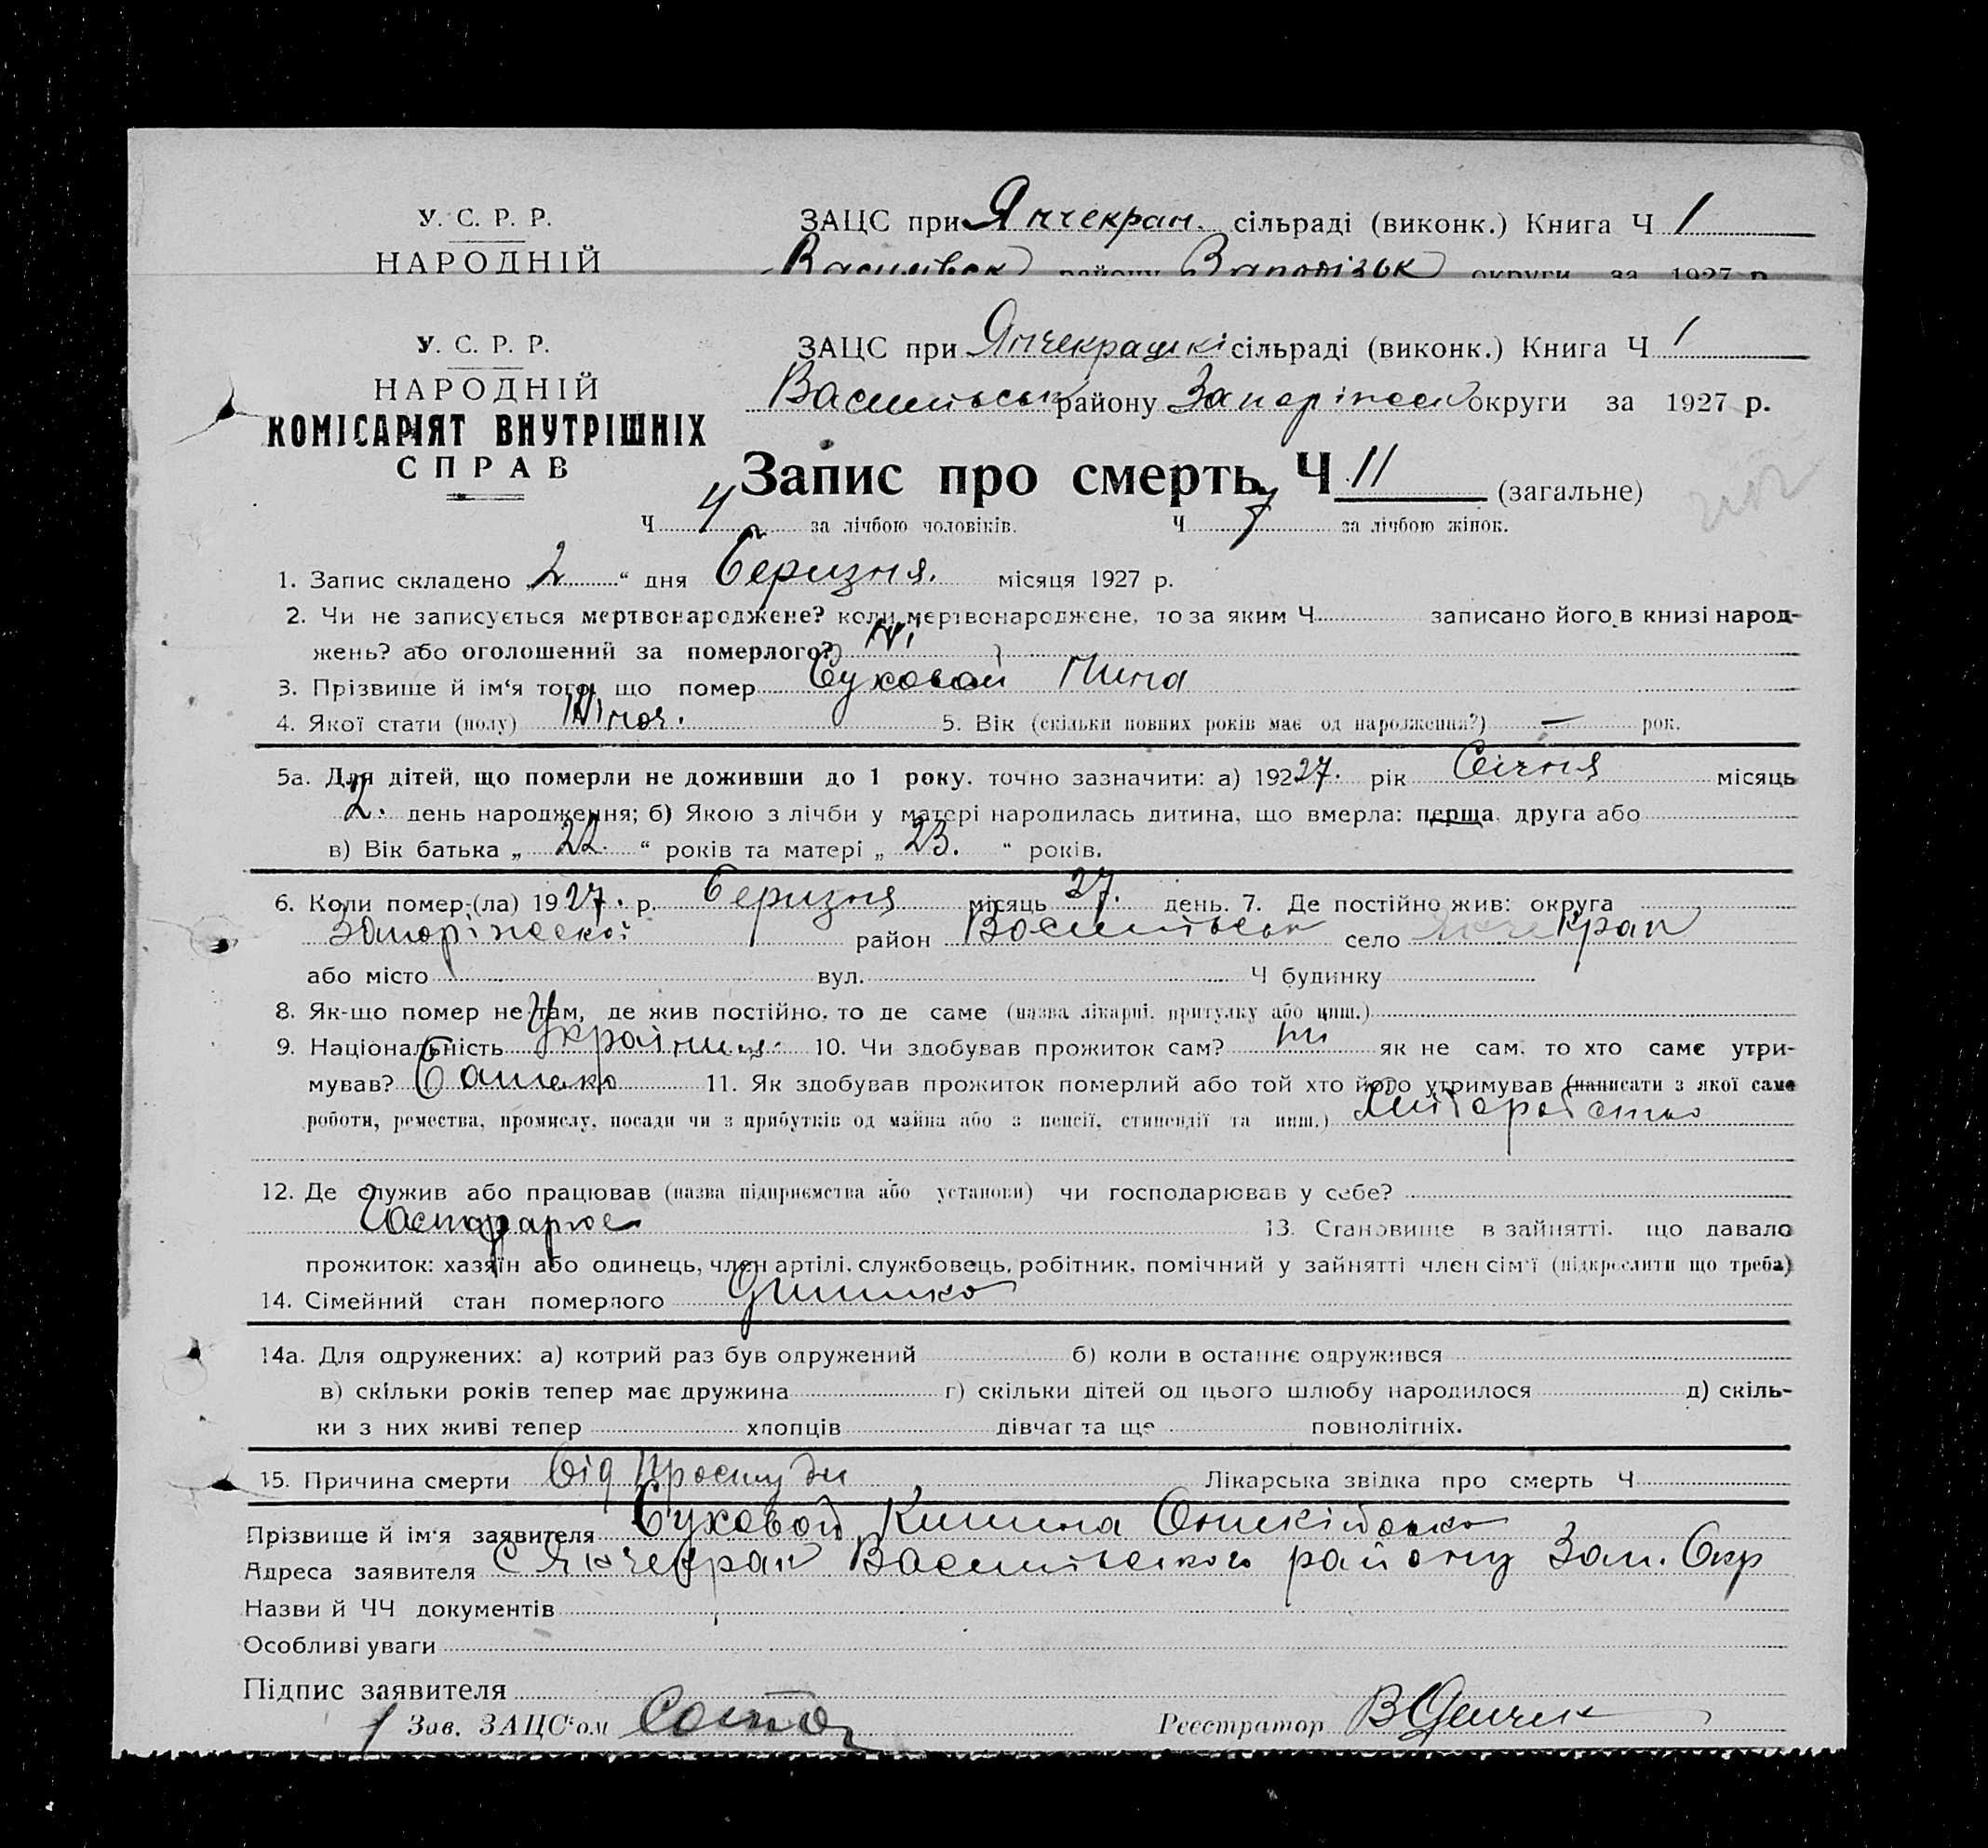 У. С. Р. Р.
НАРОДНІЙ
ЗАЦС при Янчекрак. сільраді (виконк.) Книга Ч 1
Василівськ району Запорізьк округи за 1927 р.
У. С. Р. Р.
НАРОДНІЙ
КОМІСАРІЯТ ВНУТРІШНІХ
СПРАВ
ЗАЦС при сільраді (виконк.) Книга Ч 1
району округи за 1927 р.
Запис про смерть Ч 11 (загальне)
Ч 4 за лічбою чоловіків. Ч 7 за лічбою жінок.
1. Запис складено „2“ дня березня. місяця 1927 р.
2. Чи не записується мертвонароджене? коли мертвонароджене, то за яким Ч записано його в книзі народ-
жень? або оголошений за померлого? Ні
3. Прізвище й ім‘я того, що помер Буховой
4. Якої статі (полу) Жіноч. 5. Вік (скільки повних років має од народження?) — рок.
5а. Для дітей, що померли не доживши до 1 року. точно зазначити: а) 19227. рік Січня місяць
2. день народження; б) Якою з лічби у матері народилась дитина, що вмерла: перша, друга або
в) Вік батька „ 22. “ років та матері „ 23. “ років.
6. Коли помер-(ла) 1927. р. березня місяць 27. день. 7. Де постійно жив: округа
район село
або місто вул. Ч будинку
8. Як-що помер не там, де жив постійно, то де саме (назва лікарні, притулку або инш.)
9. Національність 10. Чи здобував прожиток сам? ні як не сам, то хто саме утри-
мував? Батько 11. Як здобував прожиток померлий або той хто його утримував (написати з якої саме
роботи, ремества, промислу, посади чи з прибутків од майна або з пенсії, стипендії та инш.)
12. Де служив або працював (назва підприємства або установи) чи господарював у себе?
13. Становище в зайнятті, що давало
прожиток: хазяїн або одинець, член артілі, службовець, робітник, помічний у зайнятті член сім‘ї (підкреслити що треба)
14. Сімейний стан померлого
14а. Для одружених: а) котрий раз був одружений б) коли в останнє одружився
в) скільки років тепер має дружина г) скільки дітей од цього шлюбу народилося д) скіль-
ки з них живі тепер хлопців дівчат та ще повнолітніх.
15. Причина смерти від простуди Лікарська звідка про смерть Ч
Прізвище й ім‘я заявителя Буховой
Адреса заявителя С Янчекрак Василівського району Зап. Окр
Назви й ЧЧ документів
Особливі уваги
Підпис заявителя
Зав. ЗАЦС‘ом Реєстратор